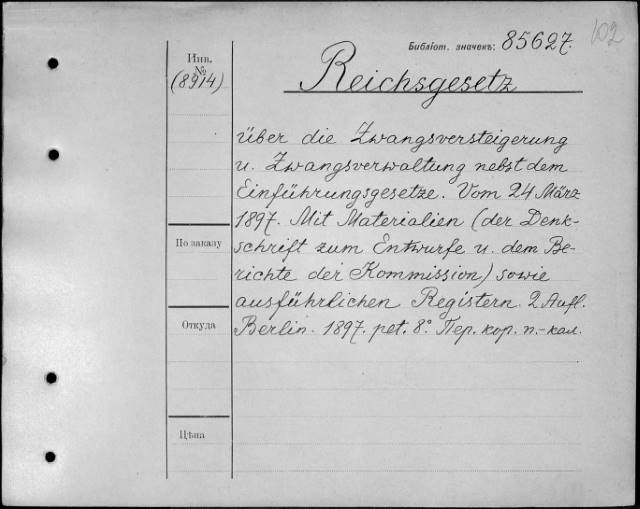 102
Библіот. значекъ: 85627.
Инв.
№
(8914)
Reichsgesetz
über die Zwangsversteigerung
u. Zwangsverwaltung nebst dem
Einführungsgesetze. Vom 24 März
1897. Mit Materialien (der Denk-
schrift zum Entwurfe u. dem Be-
richte der Kommission) sowie
ausführlichen Registern. 2 Aufl.
Berlin. 1897. pet. 8° Пер. кор. п.-кал.
По заказу
Откуда
Цѣна